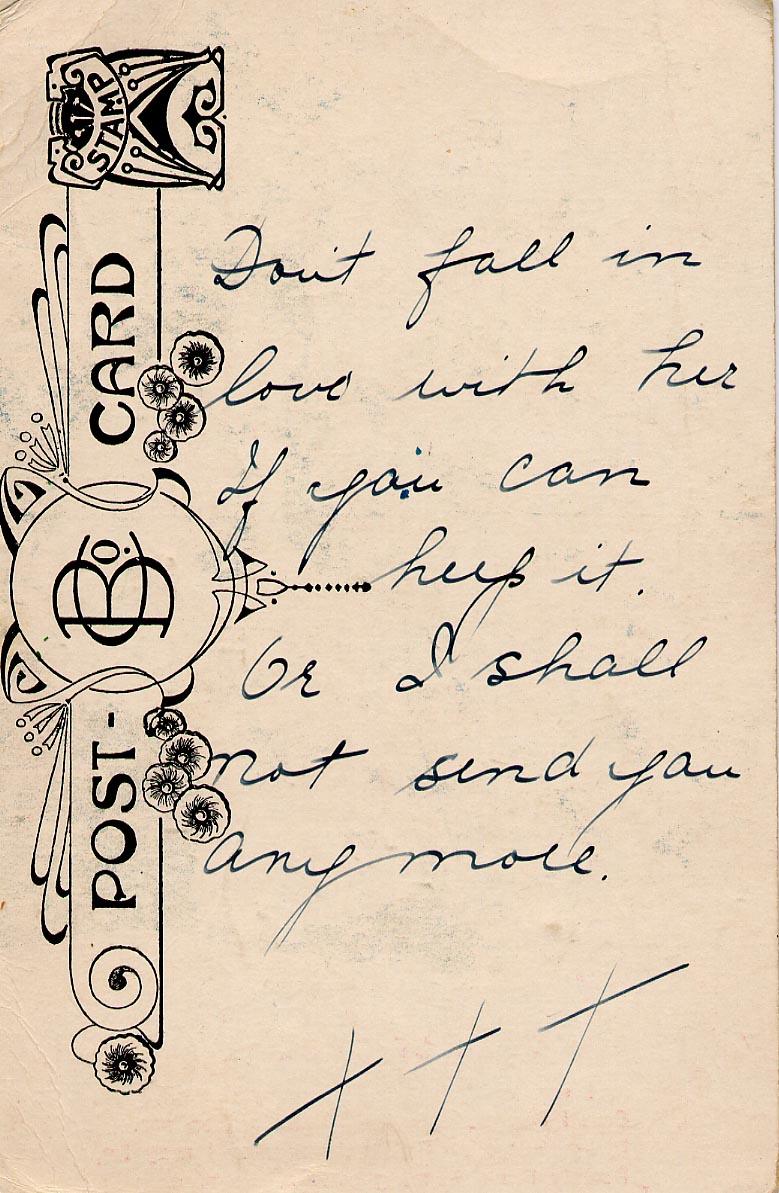 STAMP
POST-CARD
Don't fall in
love with her
If you can
keep it.
Or I shall
not send you
any more.
X X X